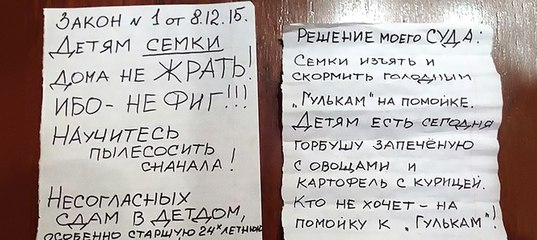 ЗАКОН N 1 от 8.12.15.
ДЕТЯМ СЕМКИ
ДОМА НЕ ЖРАТЬ!
ИБО - НЕ ФИГ!!!
НАУЧИТЕСЬ
ПЫЛЕСОСИТЬ
СНАЧАЛА!
НЕСОГЛАСНЫХ
СДАМ В ДЕТДОМ,
ОСОБЕННО СТАРШУЮ 24х ЛЕТНЮЮ
РЕШЕНИЕ МОЕГО СУДА:
СЕМКИ ИЗЪЯТЬ И
СКОРМИТЬ ГОЛОДНЫМ
„ГУЛЬКАМ" НА ПОМОЙКЕ.
ДЕТЯМ ЕСТЬ СЕГОДНЯ
ГОРБУШУ ЗАПЕЧЁНУЮ
С ОВОЩАМИ И
КАРТОФЕЛЬ С КУРИЦЕЙ.
КТО НЕ ХОЧЕТ - НА
ПОМОЙКУ К „ГУЛЬКАМ"!